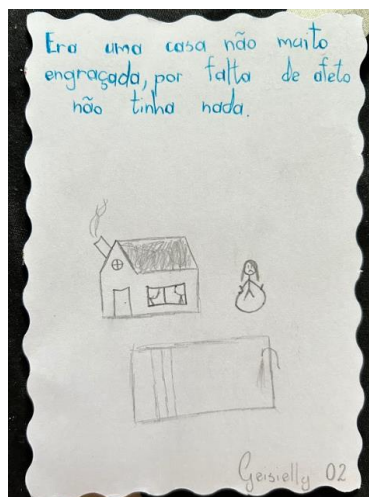 Era uma casa não muito
engraçada, por falta de afeto
não tinha nada.
Geisielly 02